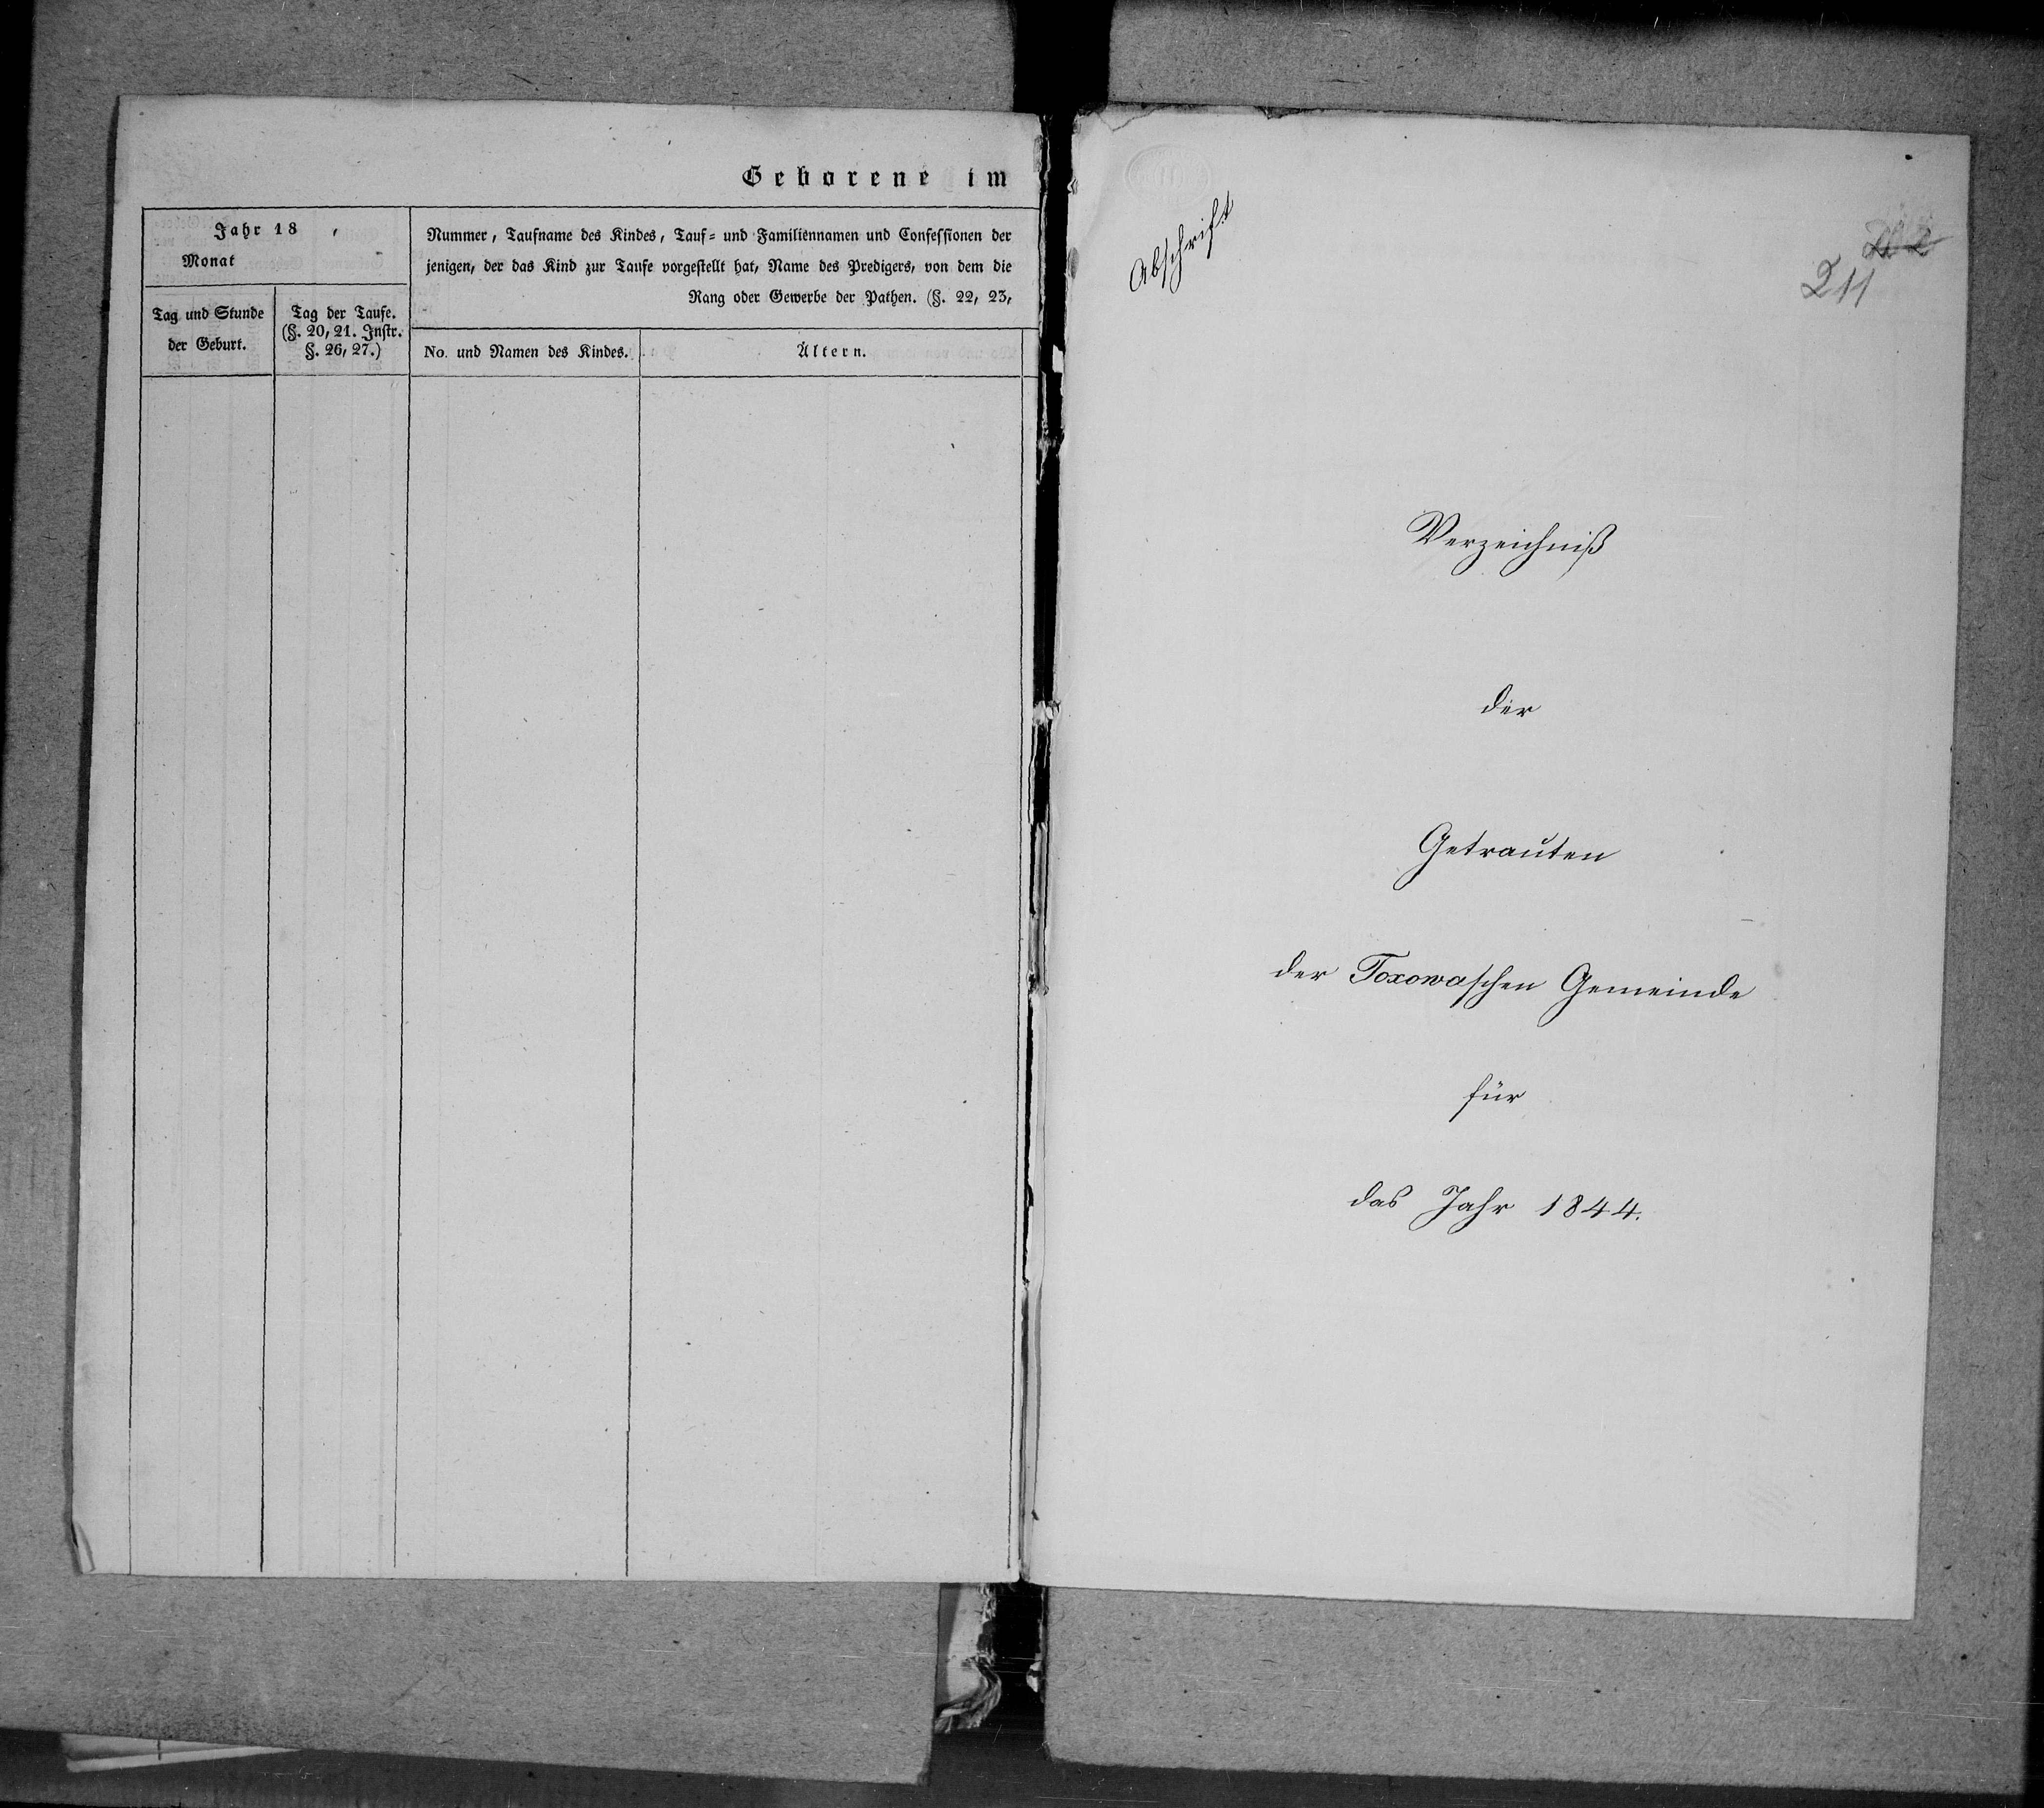 Geborene im
Jahr 18 ,
Monat
Tag und Stunde
der Geburt.
Tag der Taufe.
(§. 20, 21. Instr.
§. 26, 27.)
Nummer, Taufname des Kindes, Tauf- und Familiennamen und Confessionen der
jenigen, der das Kind zur Taufe vorgestellt hat, Name des Predigers, von dem die
Rang oder Gewerbe der Pathen. (§. 22, 23,
No. und Namen des Kindes.
Ältern.
Abschrift
211
Verzeichniß
der
Getrauten
der Toxowaschen Gemeinde
für
das Jahr 1844.